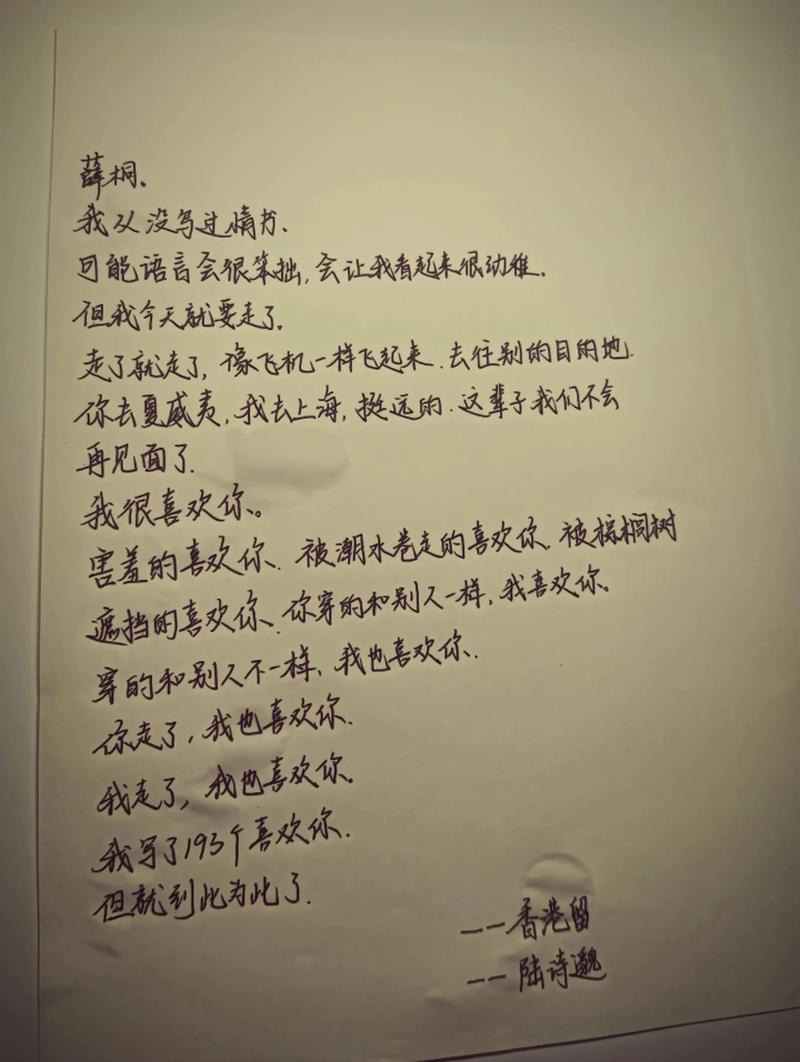 薛桐、
我从没写过情书、
可能语言会很笨拙，会让我看起来很幼稚．
但我今天就要走了．
走了就走了，像飞机一样飞起来．去往别的目的地．
你去夏威夷，我去上海，挺远的．这辈子我们不会
再见面了．
我很喜欢你。
害羞的喜欢你．被潮水卷走的喜欢你．被棕榈树
遮挡的喜欢你．你穿的和别人一样，我喜欢你。
穿的和别人不一样，我也喜欢你．
你走了，我也喜欢你．
我走了，我也喜欢你。
我写了193个喜欢你．
但就到此为此了．
——香港留
——陆诗邈